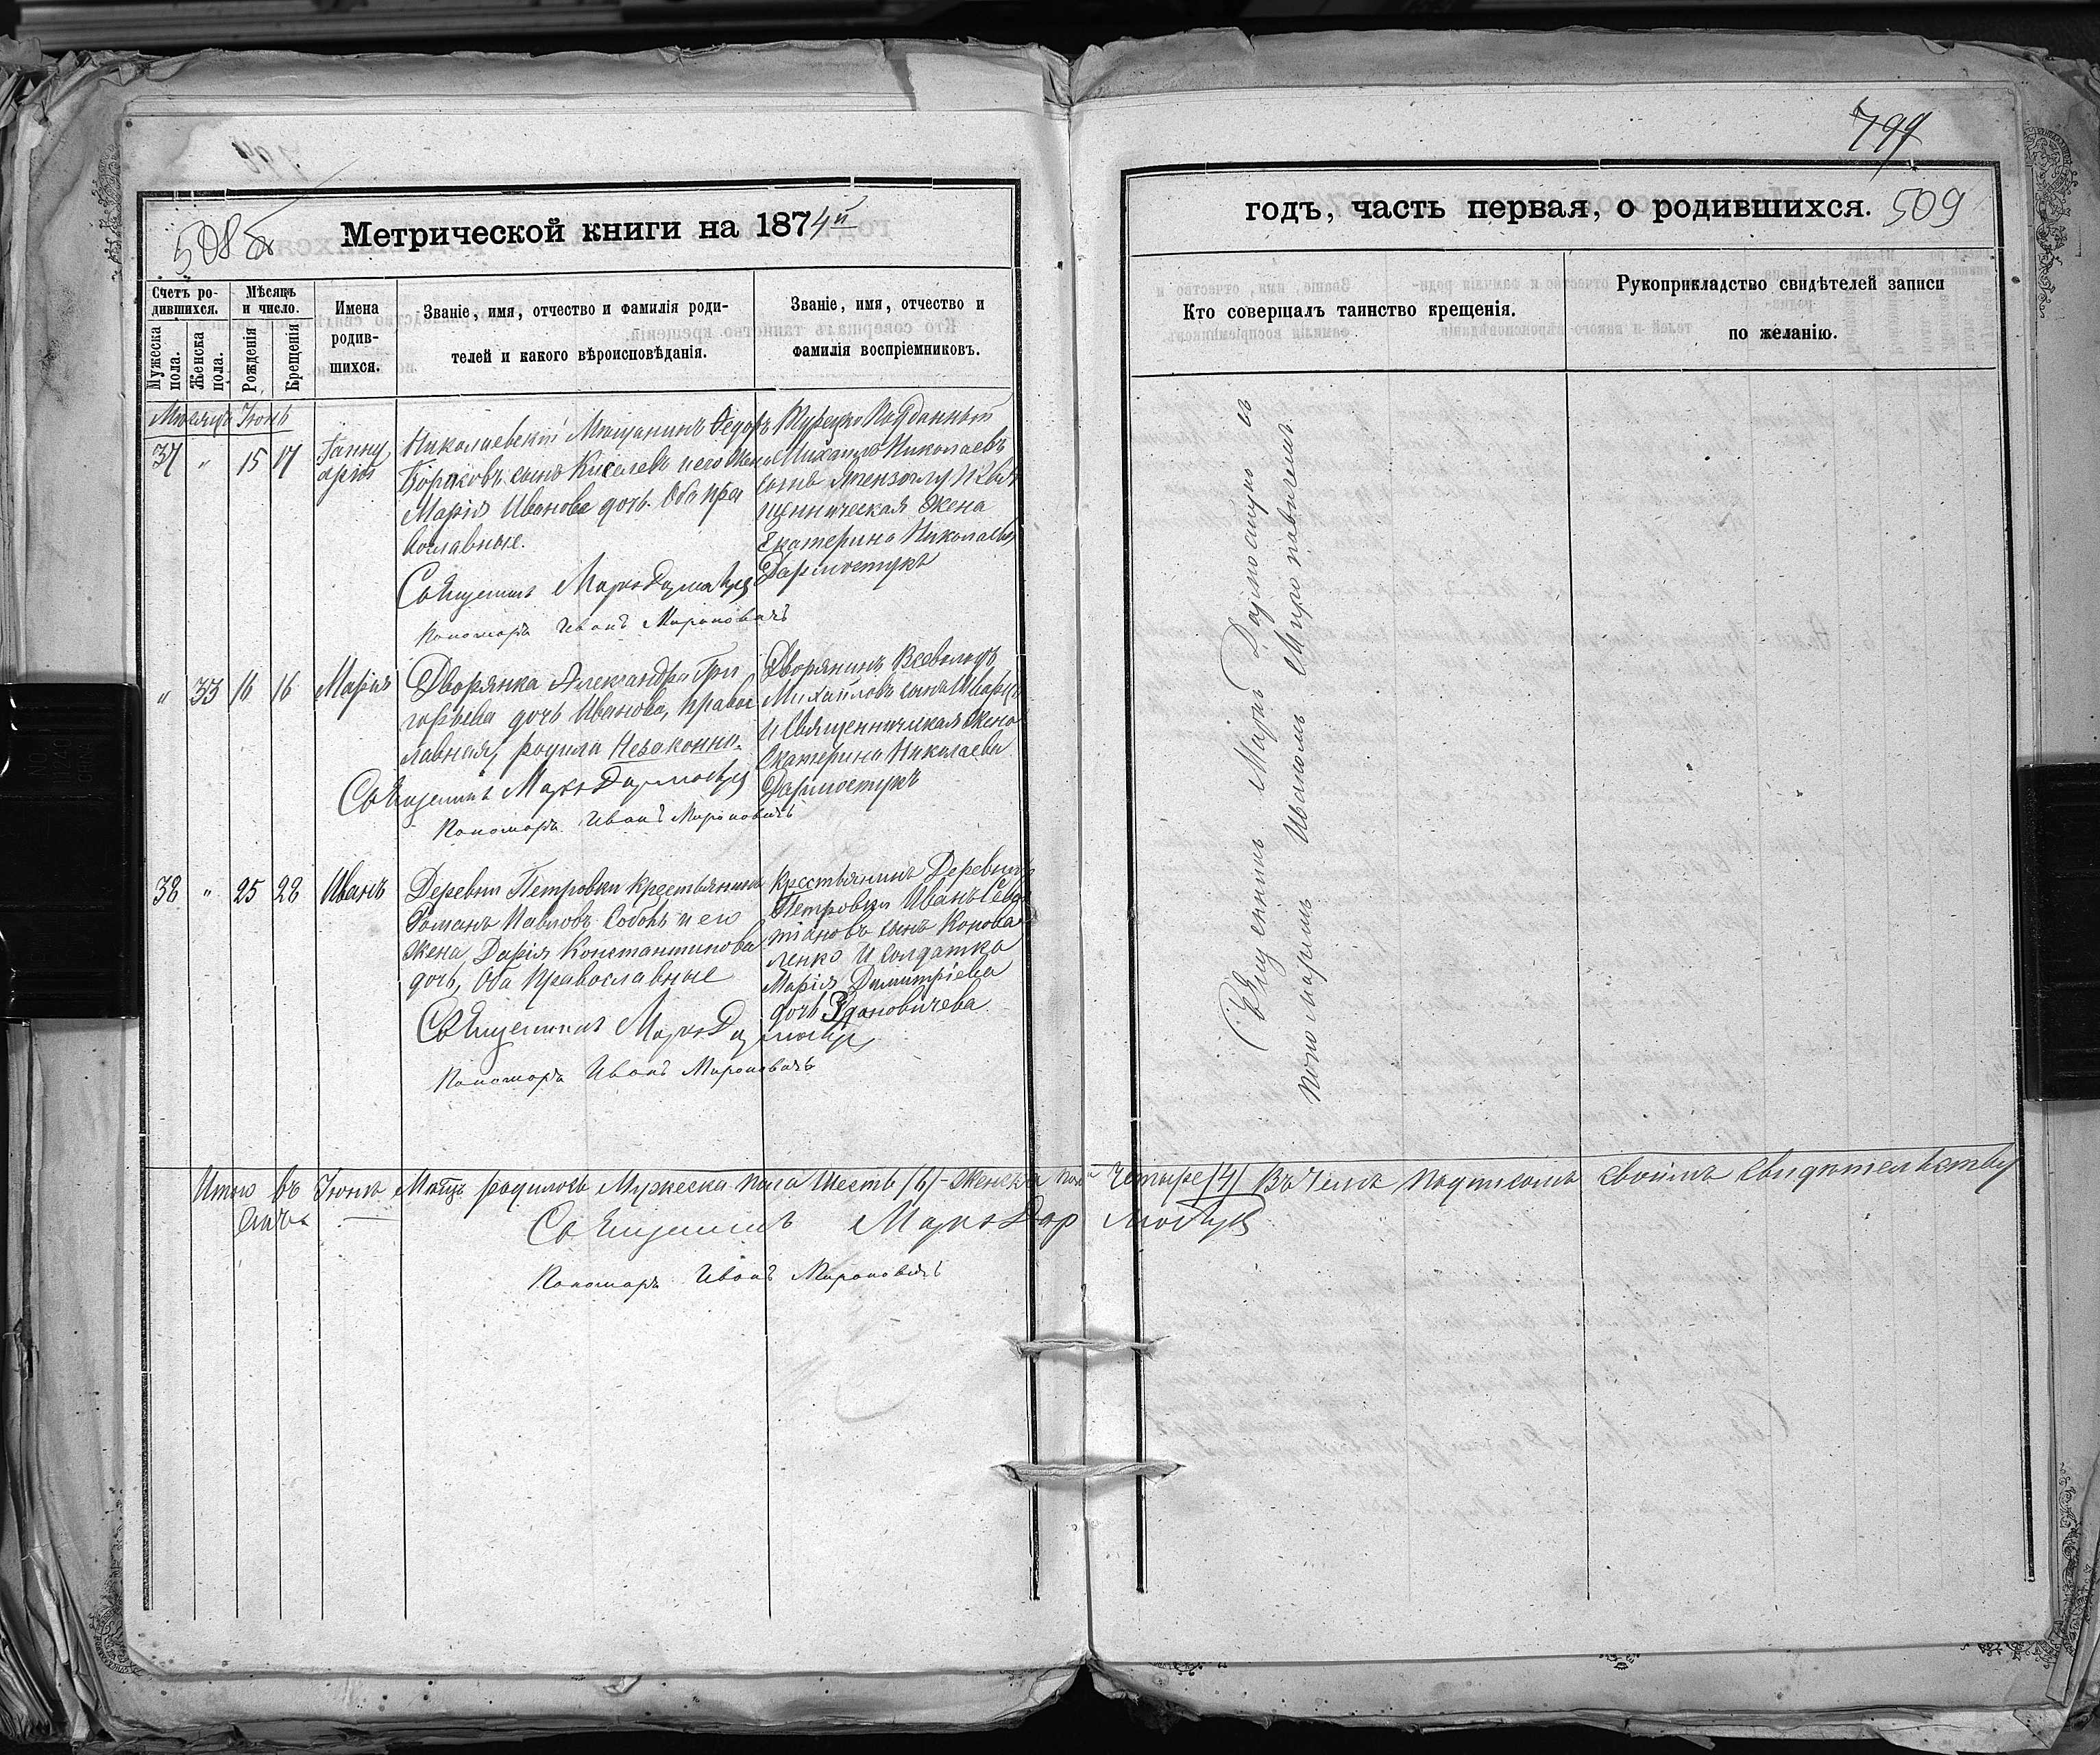 794
508 б
Метрической книги на 1874й
Счетъ ро-
дившихся.
Мужеска
пола.
Женска
пола.
Мѣсяцъ
и число.
Рожденія
Крещенія
Имена
родив-
шихся.
Званіе, имя, отчество и фамилія роди-
телей и какого вѣроисповѣданія.
Званіе, имя, отчество и
фамилія воспріемниковъ.
Мѣсяцъ Іюнь
37 " 15 17
Ианну
арія
Николаевскій Мѣщанинъ Ѳедоръ
сынъ Киселевъ и его жена
Марія Иванова дочь. Оба пра
вославные.
Священникъ Марко
Пономарь Иванъ Мироновичъ
Турецко Подданный
Михаилъ Николаевъ
сынъ
щенническая жена
Екатерина Николаева
Дармостукъ
" 33 16 16
Марія
Дворянка Александра Гри
горьева дочь Иванова, правос
лавная, родила незаконно.
Священникъ Марко Дармостукъ
Пономарь Иванъ Мироновичъ
Дворянинъ Всеволодъ
Михайловъ сынъ
и Священническая жена
Екатерина Николаева
Дармостукъ
38 " 25 28
Иванъ
Деревни Петровки крестьянинъ
Романъ Павловъ Собонь и его
жена Дарія Константинова
дочь, Оба Православные
Священникъ Марко Дармостукъ
Пономарь Иванъ Мироновичъ
Крестьянинъ Деревни
Петровки Иванъ Сева
тіановъ сынъ Конова
ленко и солдатка
Марія Димитріева
дочь Здановичева
Итого въ Іюнѣ Мѣцѣ родилось Мужеска пола Шесть /6/ - женска пола Четыре /4/ Въ чемъ подписомъ своимъ свидѣтельству
емъ
Священникъ Марко Дармостукъ
Пономарь Иванъ Мироновичъ
годъ, часть первая, о родившихся.
509
Кто совершалъ таинство крещенія.
Рукоприкладство свидѣтелей записи
по желанію.
Священникъ Марко Дармостукъ съ
пономаремъ Иваномъ Мироновичемъ.